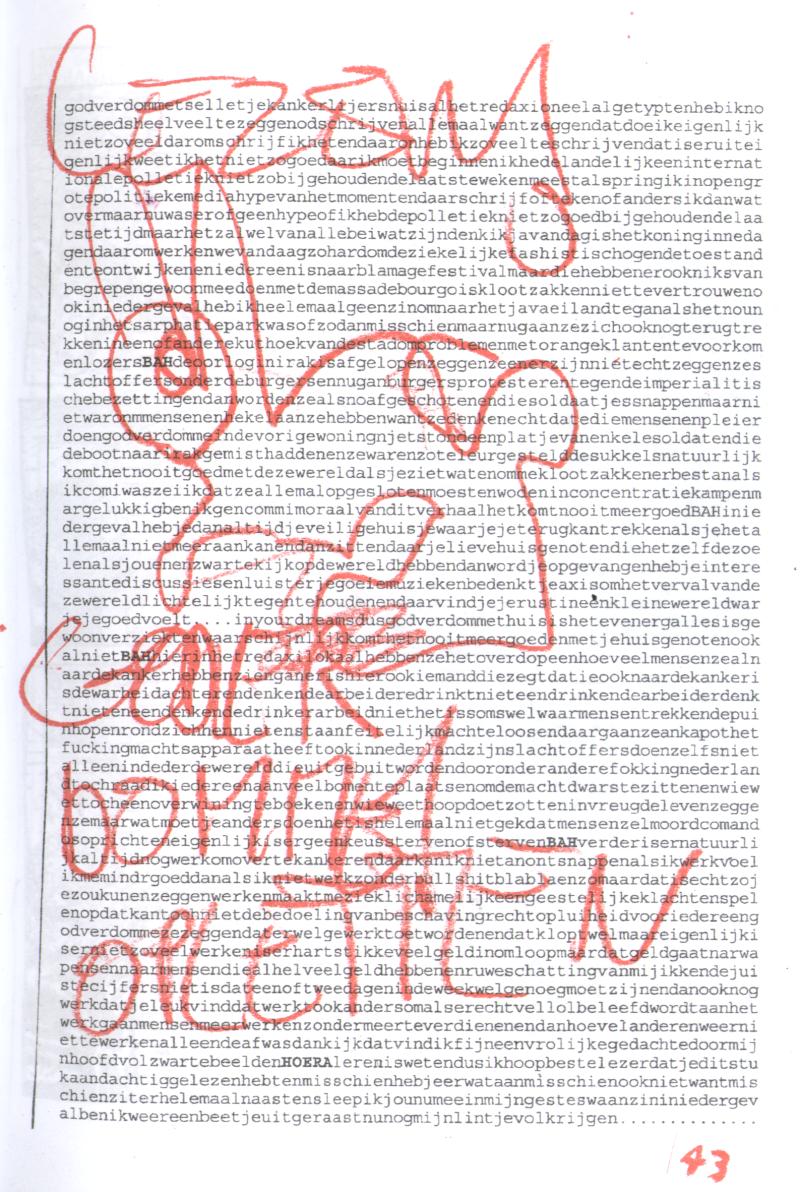 godverdommetselletjekankerlijersnuisalhetredaxioneelalgetyptenhebikno
gsteedsheelveeltezeggenodschrijvenallemaalwantzeggendatdoeikeigenlijk
nietzoveeldaaromschrijfikhetendaaronhebikzoveelteschrijvendatiseruitei
genlijkweetikhetnietzogoedaarikmoetbeginnenikhedelandelijkeeninternat
ionalepolletieknietzobijgehoudendelaatstewekenmeestalspringikinopengr
otepolitiekemediahypevanhetmomentendaarschrijfoftekenofandersikdanwat
overmaarnuwaserofgeenhypeofikhebdepolletieknietzogoedbijgehoudendelaa
tstetijdmaarhetzalwelvanallebeiwatzijndenkikjavandagishetkoninginneda
gendaaromwerkenwevandaagzohardomdeziekelijkefashistischogendetoestand
enteontwijkeneniedereenisnaarblamagefestivalmaardiehebbenerookniksvan
begrepengewoonmeedoenmetdemassadebourgoisklootzakkenniettevertrouweno
okiniedergevalhebikheelemaalgeenzinomnaarhetjavaeilandteganalshetnoun
oginhetsarphatieparkwasofzodanmisschienmaarnugaanzezichooknogterugtre
kkenineenofanderekuthoekvandestadomproblemenmetorangeklantentevoorkom
enlozersBAHdeoorloginirakisafgelopenzeggenzeenerzijnnietechtzeggenzes
lachtoffersonderdeburgersennuganburgersprotesterentegendeimperialitis
chebezettingendanwordenzealsnoafgeschotenendiesoldaatjessnappenmaarni
etwaronmmensenenhekelaanzehebbenwantzedenkenechtdatediemensenenpleier
doengodverdommeindevorigewoningnjetstondeenplatjevanenkelesoldatendie
debootnaarirakgemisthaddenenzewarenzoteleurgestelddesukkelsnatuurlijk
komthetnooitgoedmetdezewereldalsjezietwatenommeklootzakkenerbestanals
ikcomiwaszeiikdatzeallemalopgeslotenmoestenwodeninconcentratiekampenm
argelukkigbenikgencommimoraalvanditverhaalhetkomtnooitmeergoedBAHinie
dergevalhebjedanaltijdjeveiligehuisjewaarjejeterugkantrekkenalsjeheta
llemaalnietmeeraankanendanzittendaarjelievehuisgenotendiehetzelfdezoe
lenalsjouenenzwartekijkopdewereldhebbendanwordjeopgevangenhebjeintere
ssantediscussiesenluisterjegoeiemuziekenbedenktjeaxisomhetvervalvande
zewereldlichtelijktegentehoudenendaarvindjejerustineenkleinewereldwar
jejegoedvoelt.....inyourdreamsdusgodverdommethuisishetevenergallesisge
woonverziektenwaarschijnlijkkomthetnooitmeergoedenmetjehuisgenotenook
alnietBAHhierinhetredaxilokaalhebbenzehetoverdopeenhoeveelmensenzealn
aardekankerhebbenzienganerishierookiemanddiezegtdatieooknaardekankeri
sdewarheidachterendenkendearbeideredrinktnieteendrinkendearbeiderdenk
tnieteneendenkendedrinkerarbeidniethetissomswelwaarmensentrekkendepui
nhopenrondzienhenniemenstaanfeitelijkmachteloosendaargaanzeankapothet
fuckingmachtsapparaatheeftookinnederlandzijnslachtoffersdoenzelfsniet
alleenindederdewerelddieuitgebuitwordendooronderanderefokkingnederlan
dtochraadikiedereenaanveelbomenteplaatsenomdemachtdwarstezittenenwiew
ettocheenoverwinningteboekenenwieweethoopdoetzotteninvreugdelevenzegge
nzemaarwatmoetjeandersdoenhetishelemaalnietgekdatmensenzelmoordcomand
osoprichteneigenlijkisergeenkeusstervenofstervenBAHverderisernatuurli
jkaltijdnogwerkomovertekankerendaarkaniknietanontsnappenenalsikwerkvoel
ikmemindrgoeddanalsiknietwerkzonderbullshitblablaenzomaardatisechtzoj
ezoukunenzeggenwerkenmaaktmeziekklichamelijkeengeestelijkeklachtenspel
enopdatkantoornietdebedoelingvanbeschavingrechtopluiheidvooriedereeng
odverdommezezeggendaterwelgewerktoetwordenendatkloptwelmaareigenlijki
sernietzoveelwerkeniserhartstikkeveelgeldinomloopmaardatgeldgaatnarwa
pensennaarmensendiealhelveelgeldhebbenenruweschattingvanmijikkendejui
stecijfersnietisdateenoftweedagenindeweekwelgenoegmoetzijnendanooknog
werkdatjeleukvinddatwerktookandersomalserechtvellolbeleefdwordtaanhet
werkgaanmensenmeerwerkenzondermeerteverdienenendanhoevelanderenweerni
ettewerkenalleendeafwasdankijkdatvindikfijneenvrolijkegedachtedoormij
nhoofdvolzwartebeeldenHOERAlereniswetendusikhoopbestelezerdatjeditstu
kaandachtiggelezenhebtenmisschienhebjeerwataanmisschienooknietwantmis
chienziterhelemaalnaastensleepikjounumeeinmijngesteswaanzininiedergev
albenikweereenbeetjeuitgeraastnunogmijnlintjevolkrijgen..............
43